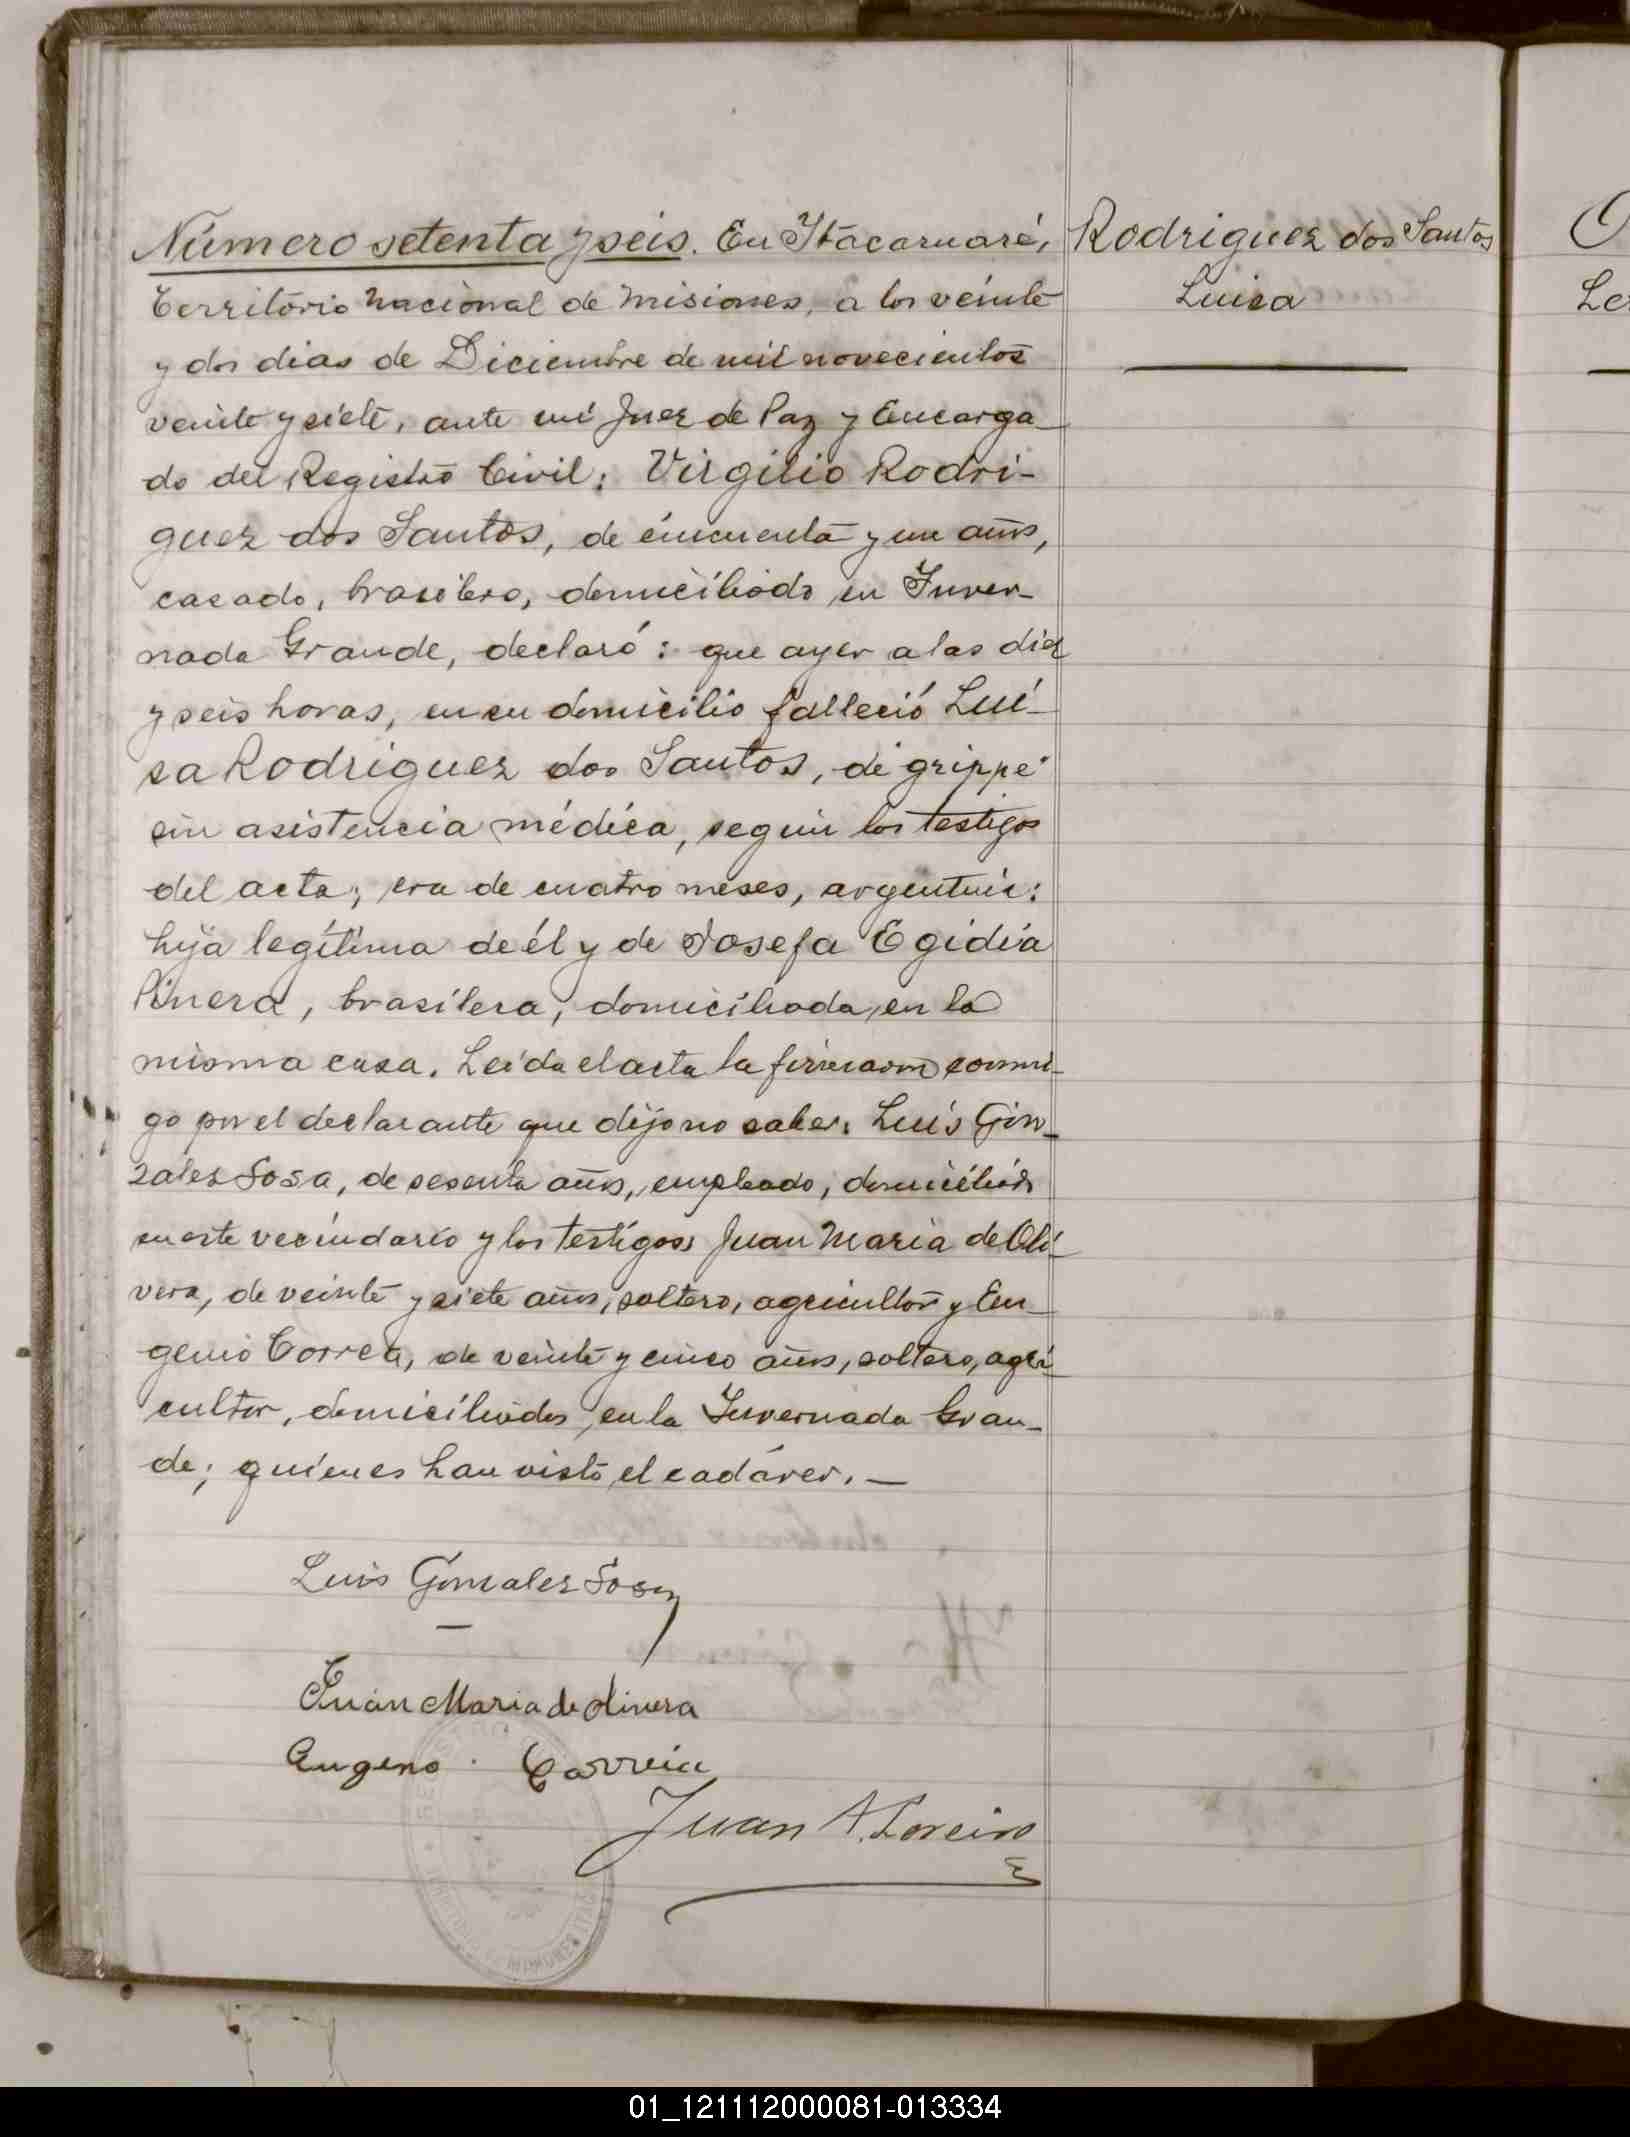 Número setenta y seis. En Itacaruaré,
Territorio Nacional de Misiones, a los veinte
y dos dias de Diciembre de mil novecientos
veinte y siete, ante mi Juez de Paz y Encarga-
do del Registro Civil: Virgilio Rodri-
guez dos Santos, de cincuenta y un años,
casado, brasilero, domiciliado en Inver-
nada Grande, declaró: que ayer a las diez
y seis horas, en su domicilio falleció Lui-
sa Rodriguez dos Santos, de grippe
sin asistencia médica, seguin los testigos
del acta; era de cuatro meses, argentina:
hija legítima de él y de Josefa Egidia
Pinera, brasilera, domiciliada en la
misma casa. Leida el acta la firmaron conmi-
go por el declarante que dijo no saber: Luis Gon-
zalez Sosa, de sesenta años, empleado, domiciliado
en este vecindario y los testigos: Juan Maria de Oli-
vera, de veinte y siete años, soltero, agricultor y Eu-
genio Correa, de veinte y cinco años, soltero, agri-
cultor, domiciliados en la Invernada Gran-
de; quienes han visto el cadáver. —
Luis Gonzalez Sosa
Juan Maria de olivera
Eugeno Correia
Juan A. Loreiro
Rodriguez dos Santos
Luisa
REGISTRO
MISIONES
01_121112000081-013334